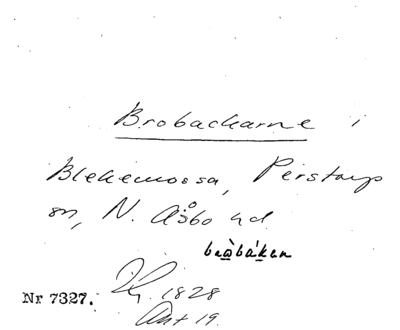 Brobackarne i
Blekemossa, Perstorps
sn, N. Åsbo hd.
bràbákan
Nr 7327. 1828
Ant 19.